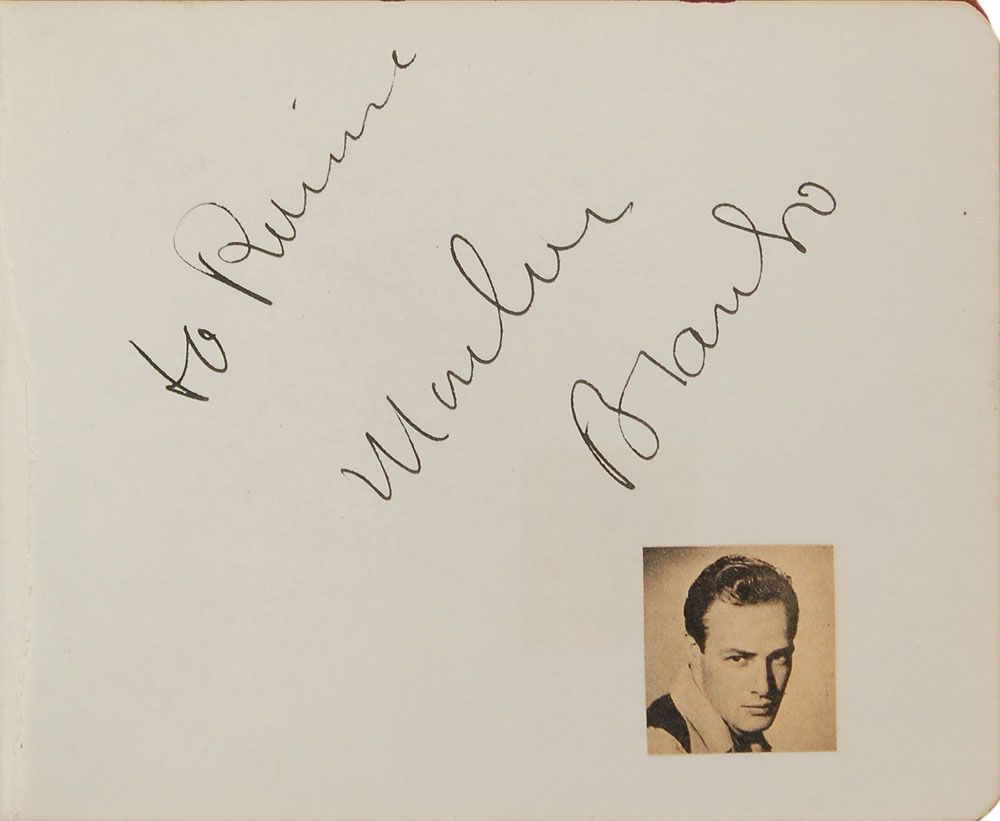 to Rainie
Marlon
Brando